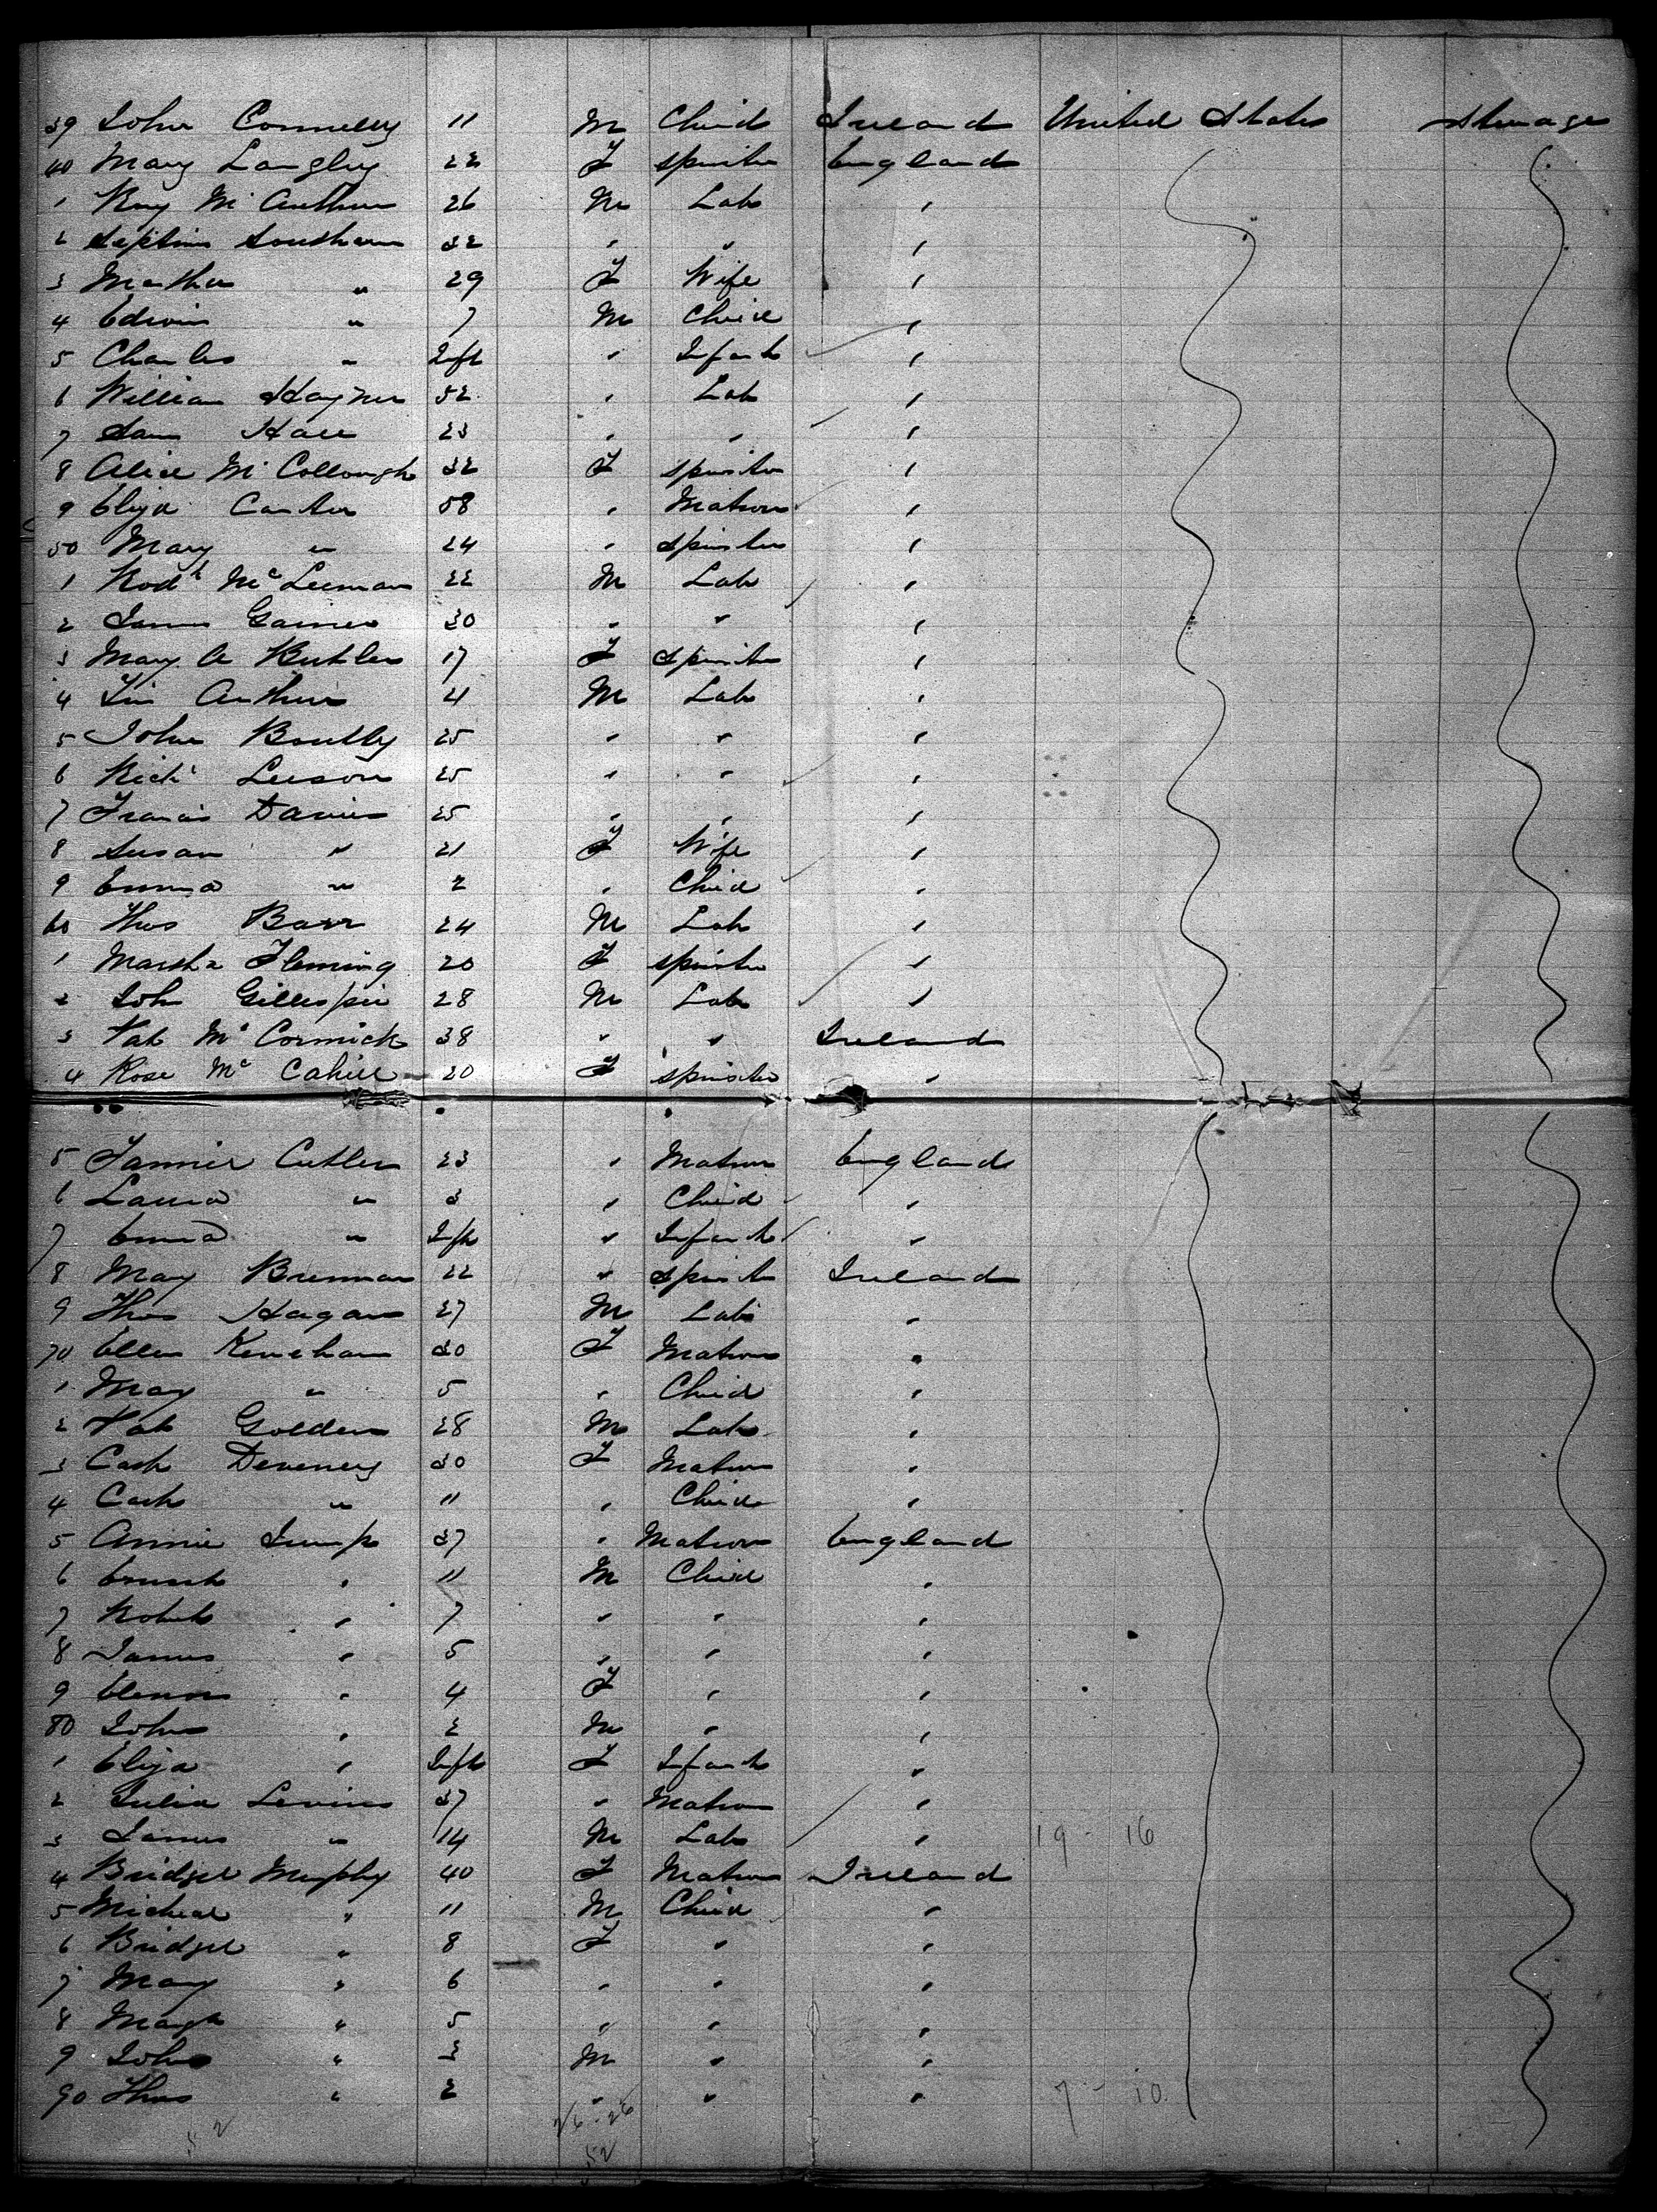 39 John Connelly 11 M Child Ireland United States Steerage
40 Mary Langley 22 F Spinster England
1 Roy Mc Arthur 26 M Lab "
2 Septim Southam 32 " " "
3 Martha " 29 F Wife "
4 Edwin " 7 M Child "
5 Charles " Inft " Infant "
6 William Hayner 52 " Lab "
7 Sam Hall 23 " " "
8 Alice Mc Collough 32 F Spinster "
9 Eliza Canter 58 " Matron "
50 Mary " 24 " Spinster "
1 Rodk Mc Leeman 22 M Lab "
2 James Gaines 30 " " "
3 Mary A Butler 17 F Spinster "
4 Tim Arthur M Lab "
5 John Boutly 25 " " "
6 Richd Leeson 25 " " "
7 Francis Davies 25 " " "
8 Susan " 21 F Wife "
9 Emma " 2 " Child "
60 Thos Barr 24 M Lab "
1 Martha Fleming 20 F Spinster "
2 Joh Gillespie 28 M Lab "
3 Pat Mc Cormick 38 " " Ireland
4 Rose Mc Cahill 20 F Spinster "
5 Fannie Cutler 23 " Matron England
6 Laura " 3 " Child "
7 Emma " Inft " Infant "
8 May Brennan 22 " Spinster Ireland
9 Thos Hagan 27 M Lab "
70 Ellen Kenehan 30 F Matron "
1 May " 5 " Child "
2 Pat Golden 28 M Lab "
3 Cath Deveney 30 F Matron "
4 Cath " 11 " Child "
5 Annie Jump 37 " Matron England
6 Ernest " 11 M Child "
7 Robert " 7 " " "
8 James " 5 " " "
9 Elenor " 4 F " "
80 John " 2 M " "
1 Eliza " Inft F Infant "
2 Julia Levins 37 " Matron "
3 James " 14 M Lab " 19 - 16
4 Bridget Murphy 40 F Matron Ireland
5 Micheal " 11 M Child "
6 Bridget " 8 F " "
7 Mary " 6 " " "
8 Margt " 5 " " "
9 John " 3 M " "
90 Thos " 2 " " " 7 - 10
52 26 - 26
52